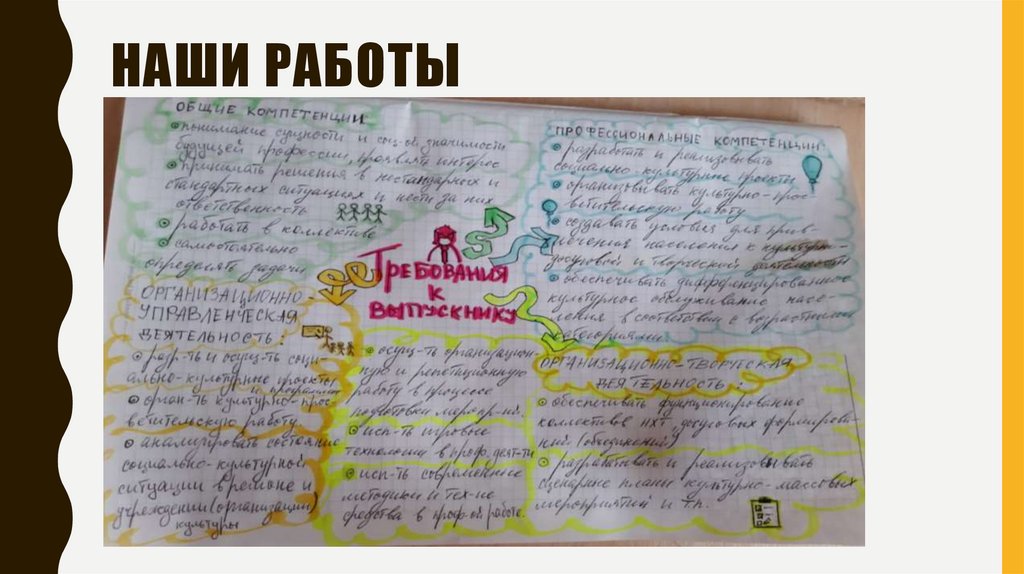 НАШИ РАБОТЫ
ОБЩИЕ КОМПЕТЕНЦИИ
понимание сущности и соц-ой значимости
будущей профессии, проявлять интерес
принимать решения в нестандарных и
стандартных ситуациях и нести за них
ответственность
работать в коллективе
самостоятельно
определять задачи
ПРОФЕССИОНАЛЬНЫЕ КОМПЕТЕНЦИИ
разработать и реализовывать
социально-культурные проекты
организовывать культурно-прос-
ветительскую работу
создавать условия для прив-
лечения населения к культурно-
досуговой и творческой деятельности
обеспечивать дифференцированное
культурное обслуживание насе-
ления в соответствии с возрастными
категориями
ТРЕБОВАНИЯ
К
ВЫПУСКНИКУ
ОРГАНИЗАЦИОННО-
УПРАВЛЕНЧЕСКАЯ
ДЕЯТЕЛЬНОСТЬ:
разр-ть и осущ-ть соци-
ально-культурные проекты
и программы
орган-ть культурно-прос-
ветительскую работу
анализировать состояние
социально-культурной
ситуации в регионе и
учреждении (организации)
культуры
осущ-ть организацион-
ную и репетиционную
работу в процессе
подготовки меропр-ий.
исп-ть игровые
технологии в проф. деят-ти
исп-ть современные
методики и тех-ие
средства в проф-ой работе.
ОРГАНИЗАЦИОННО-ТВОРЧЕСКАЯ
ДЕЯТЕЛЬНОСТЬ:
обеспечивать функционирование
коллективов НХТ, досуговых формирова-
ний (объединений)
разрабатывать и реализовывать
сценарные планы культурно-массовых
мероприятий и т.п.